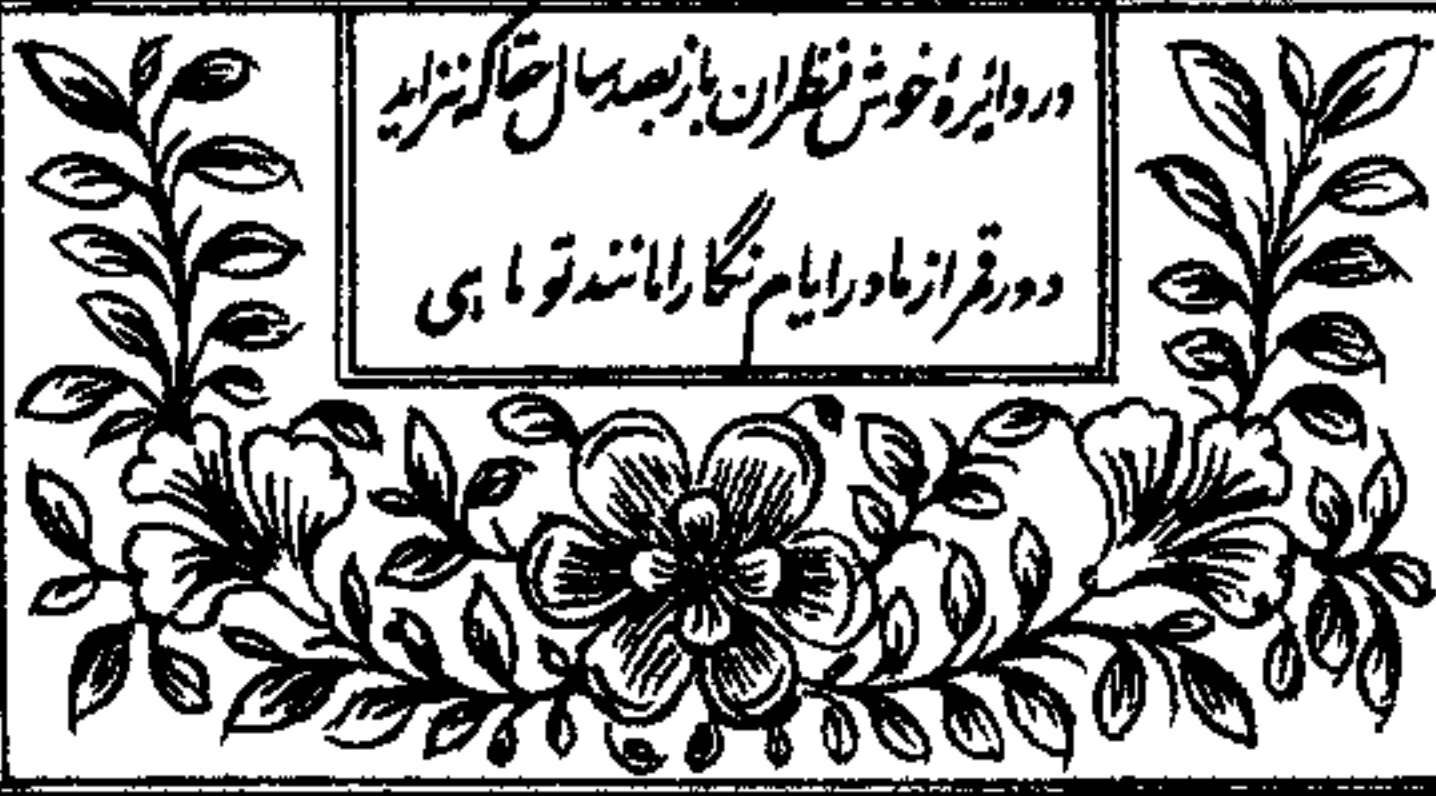 در دائیرۂ خوش نظران باز بصد سال حقا که نزاید
دور قمر از مادر ایام نگارا مانند تو ماہی